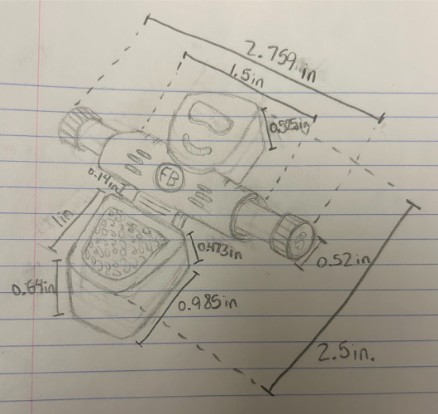 2.759in
1.5in
0.14in
FB
1in
0.473in
0.52in
0.64in
0.985in
2.5in.